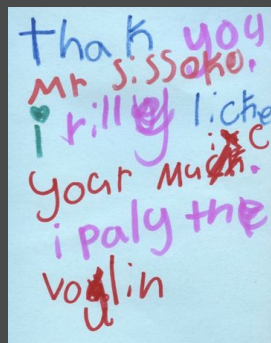 thak you
Mr sissoko.
i rilley licke
your Music.
i paly the
voylin